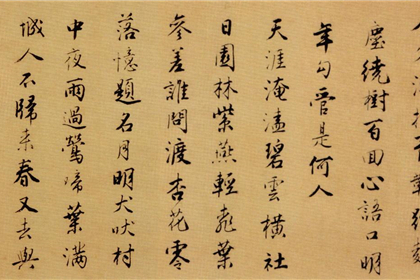 塵繞樹百回心語口明
年勾管是何人
天涯淹溘碧雲橫社
日園林紫燕輕桃葉
參差誰問渡杏花零
落憶題名月明犬吠村
中夜雨過鶯啼葉滿
城人不歸来春又去與